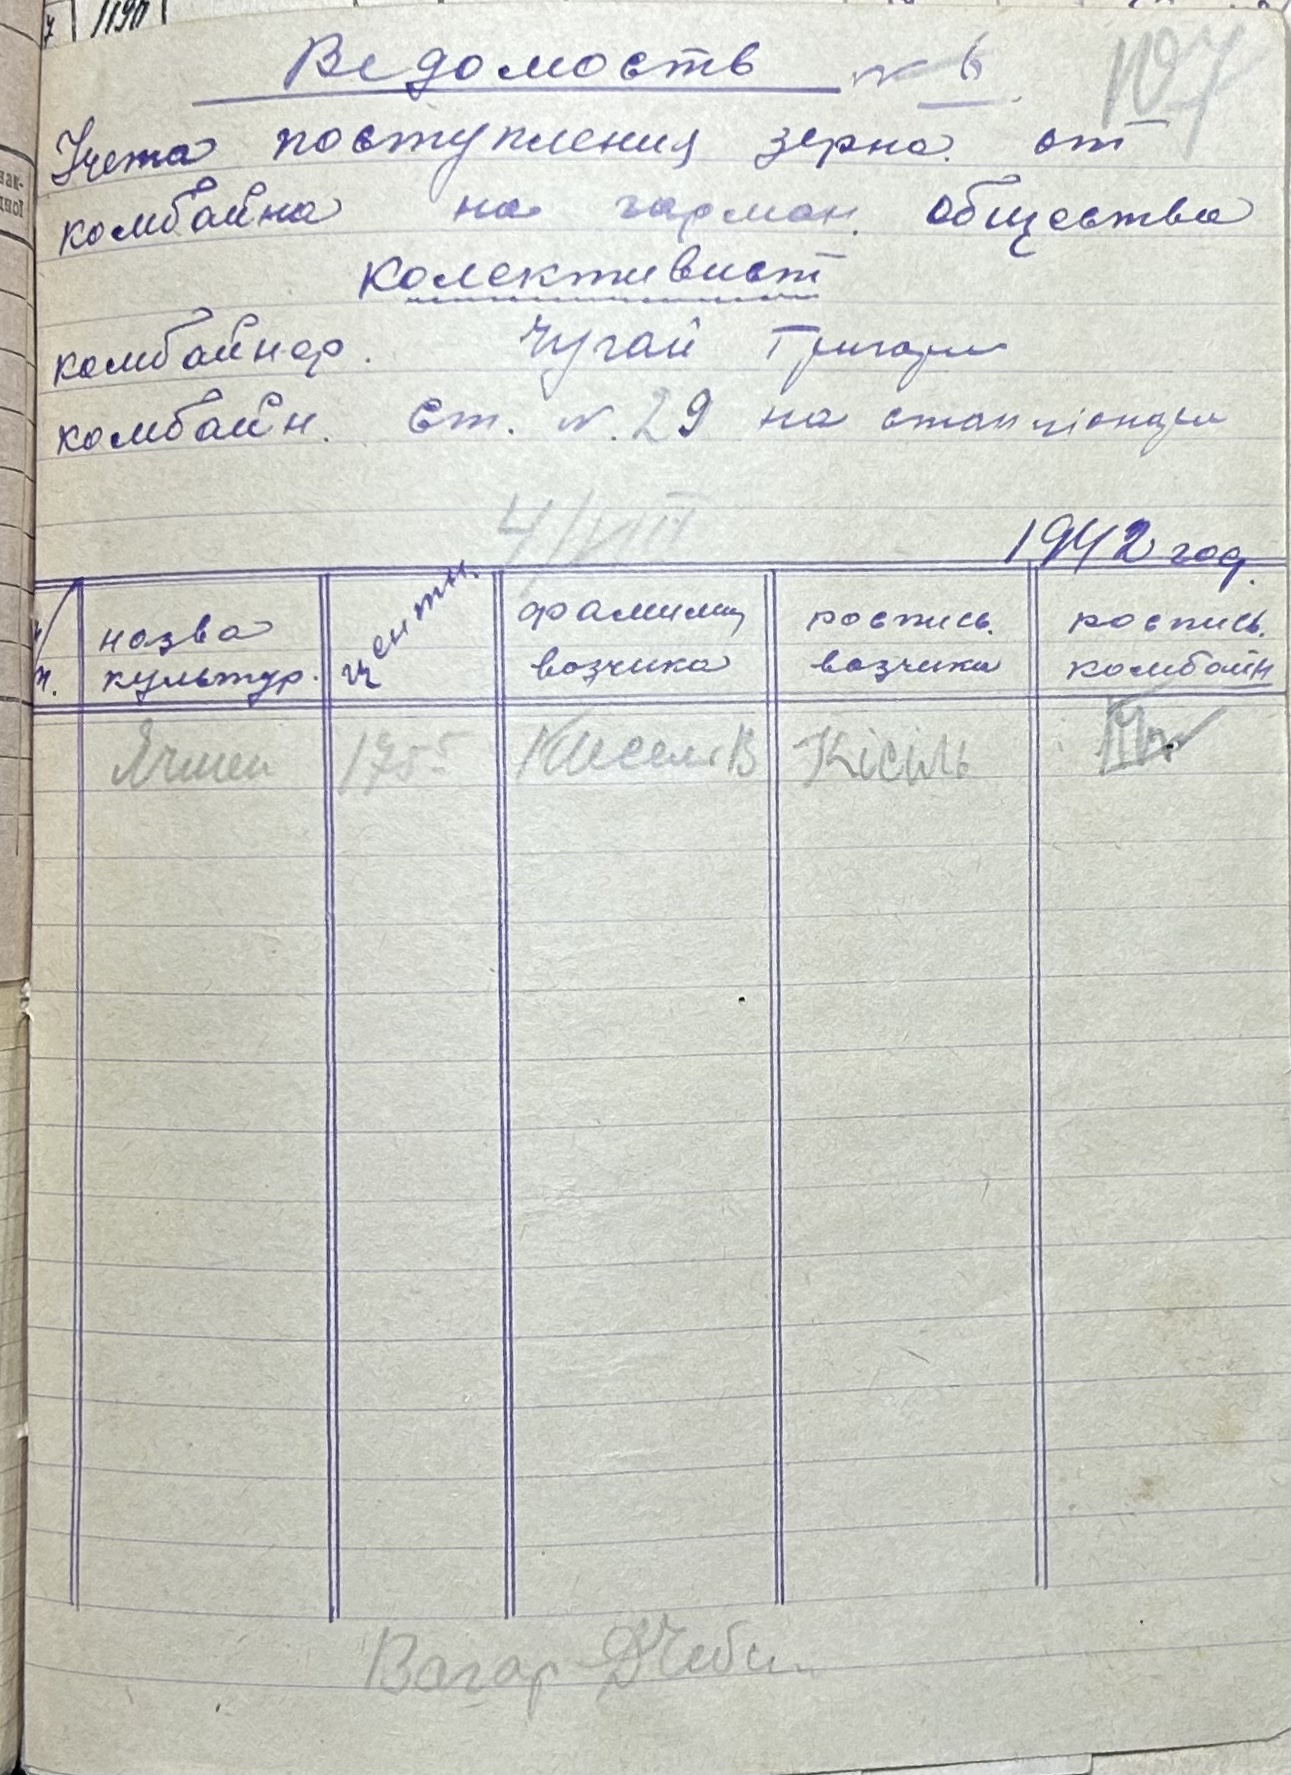 119п
Ведомость № 6
107
Учета поступления зерна. от
комбайна на гарман. общества
Колективист
комбайнер. Чугай Григорий
комбайн. Ст. №. 29 на стан
4/VIII
1942 год.
н/н. назва культур. центн. фамилия возчика роспись. возчика роспись. комбайн
Ячмен 1755 Кисель В Кісіль
Вагар